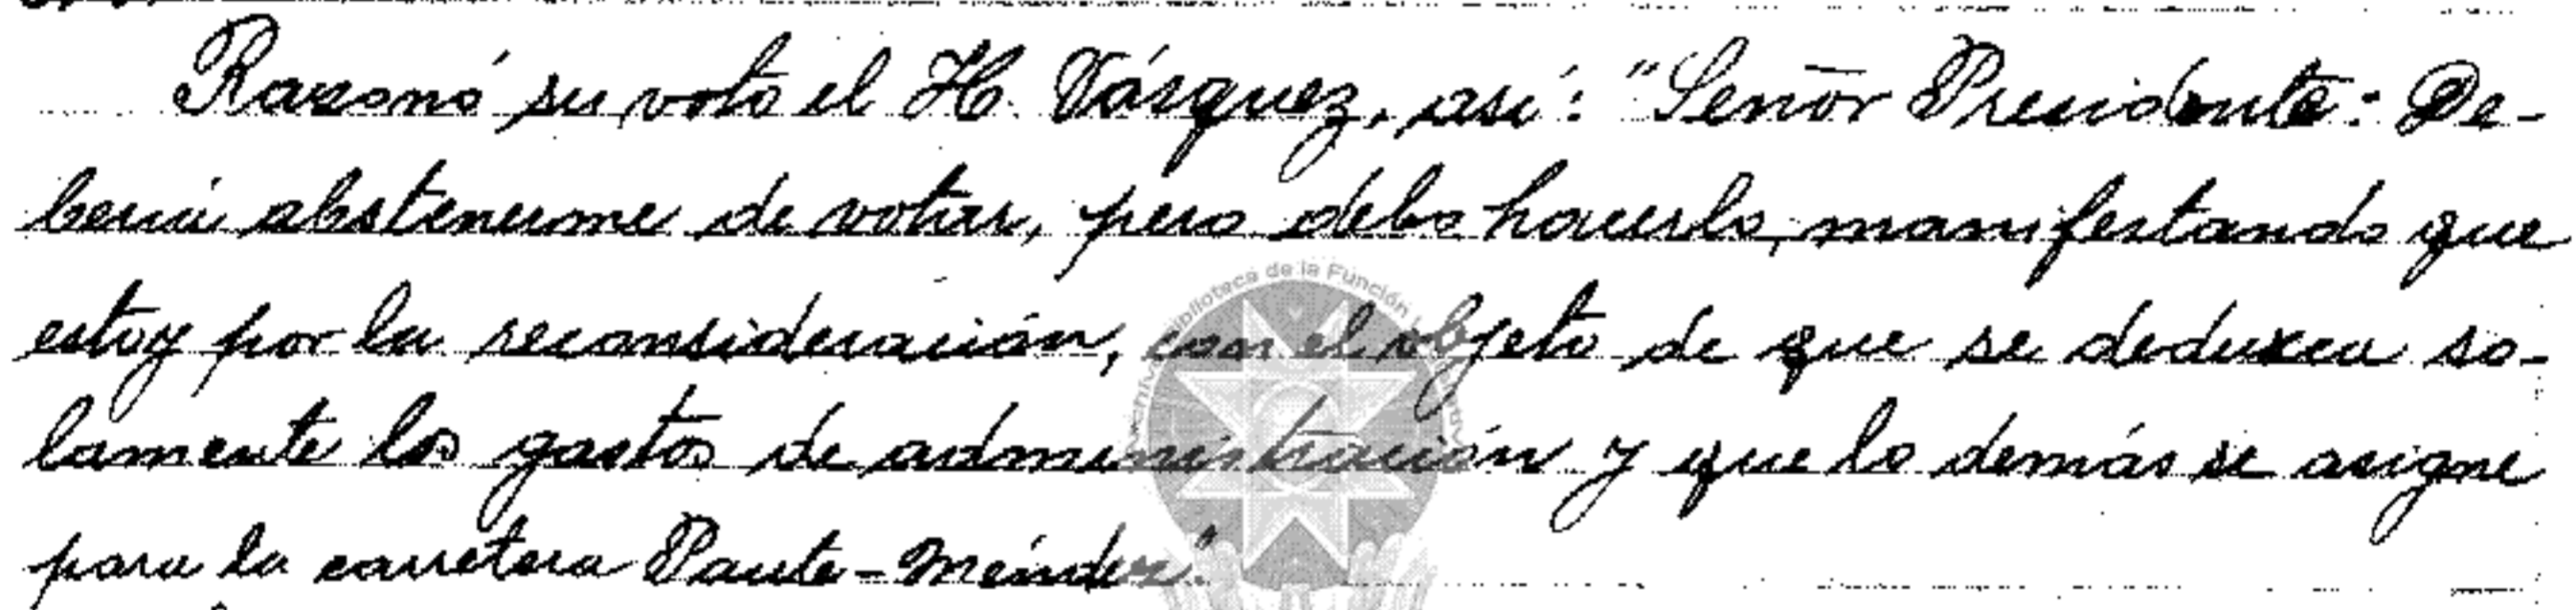 Razonó su voto el H. Vásquez, así: "Señor Presidente: De-
bería abstenerme de votar, pero debo hacerlo, manifestando que
estoy por la reconsideración, con el objeto de que se deduzca so-
lamente los gastos de administración y que lo demás se asigne
para la carretera Paute-Méndez."
Biblioteca de la Función